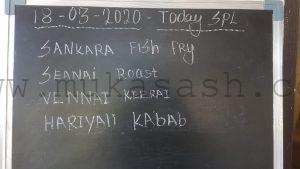 18-03-2020 - Today SPL
SANKARA FISH FRY
SEANAI ROAST
VENNAI KEERAI
HARIYALI KABAB
www.mikasash.com